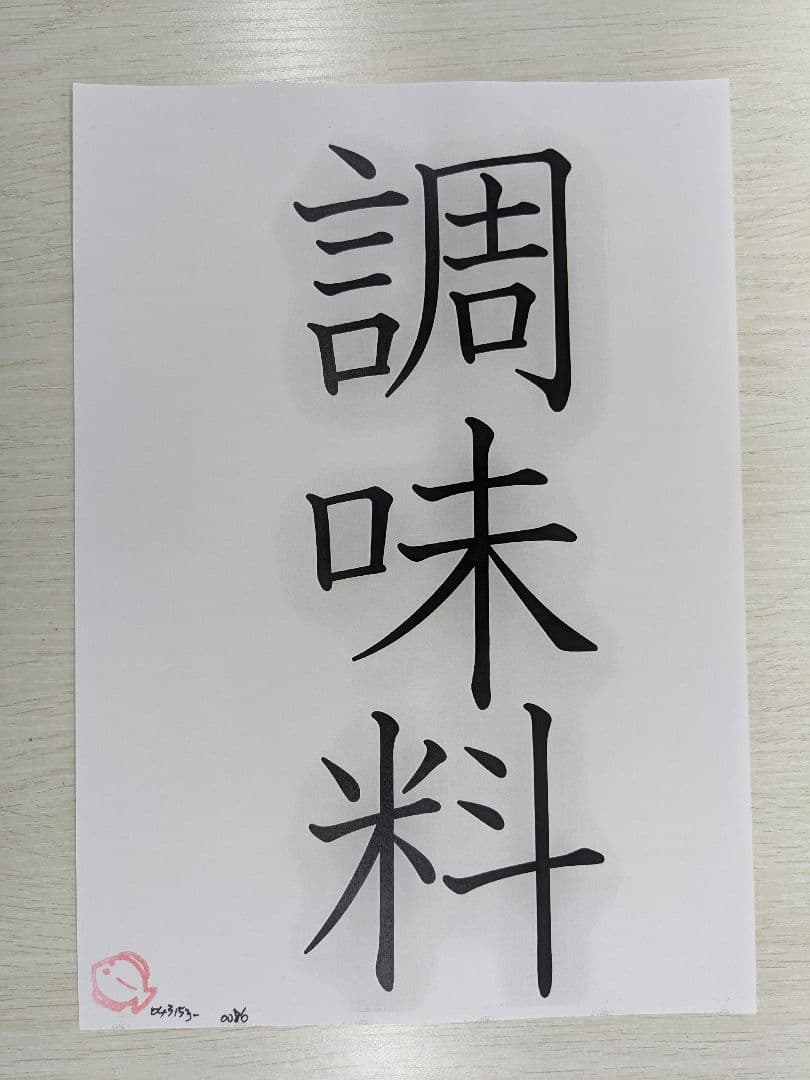 調味料
043153- 0086